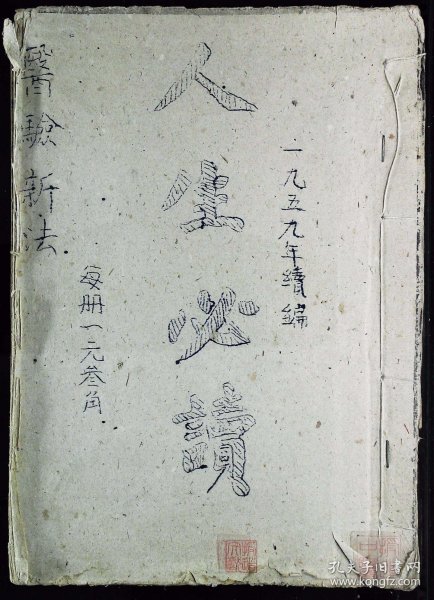 一九五九年續編
人生必讀
每册一元叁角
醫驗新法
孔夫子旧书网
www.kongfz.com